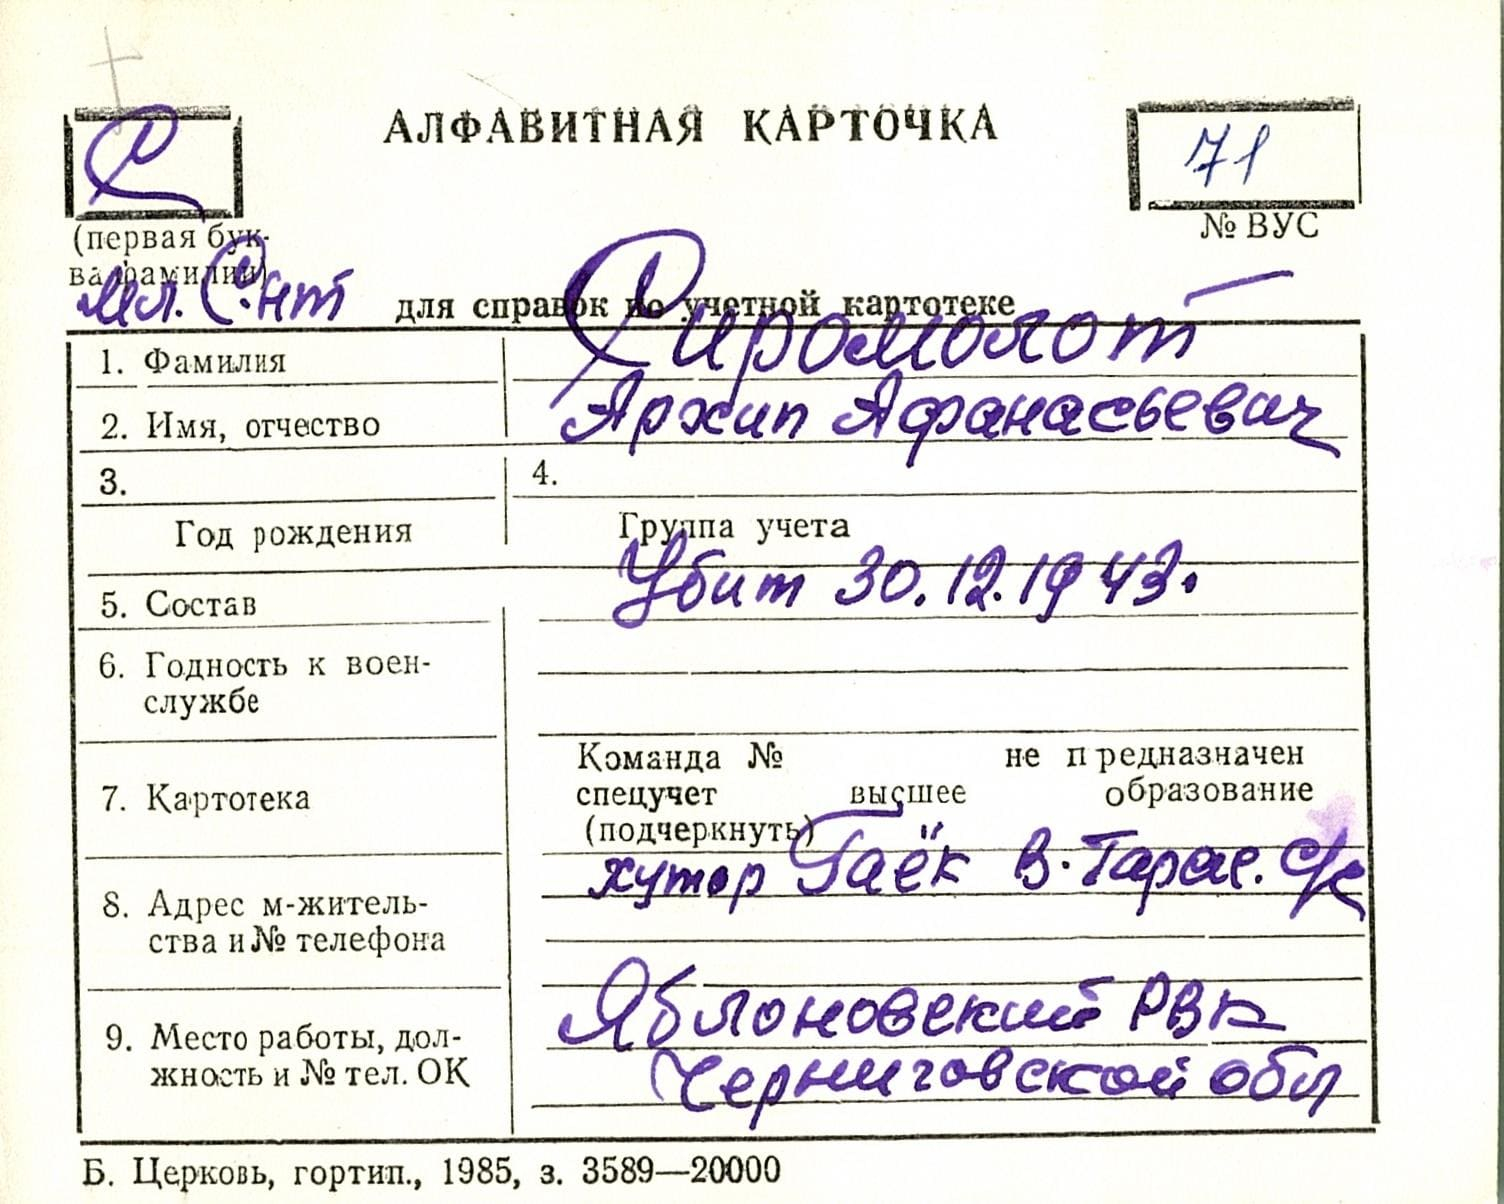 АЛФАВИТНАЯ КАРТОЧКА
С
71
(первая бук-
ва фамилии)
№ ВУС
мл. С-нт
для справок по учетной картотеке
1. Фамилия Сиромолот
2. Имя, отчество Архип Афанасьевич
3. 4.
Год рождения Группа учета
Убит 30.12.1943.
5. Состав
6. Годность к воен-
службе
Команда № не предназначен
7. Картотека спецучет высшее образование
(подчеркнуть)
хутор Гаёк В. Тарас. с/с
8. Адрес м-житель-
ства и № телефона
Яблоновский РВК
9. Место работы, дол-
жность и № тел. ОК
Черниговской обл
Б. Церковь, гортип., 1985, з. 3589—20000